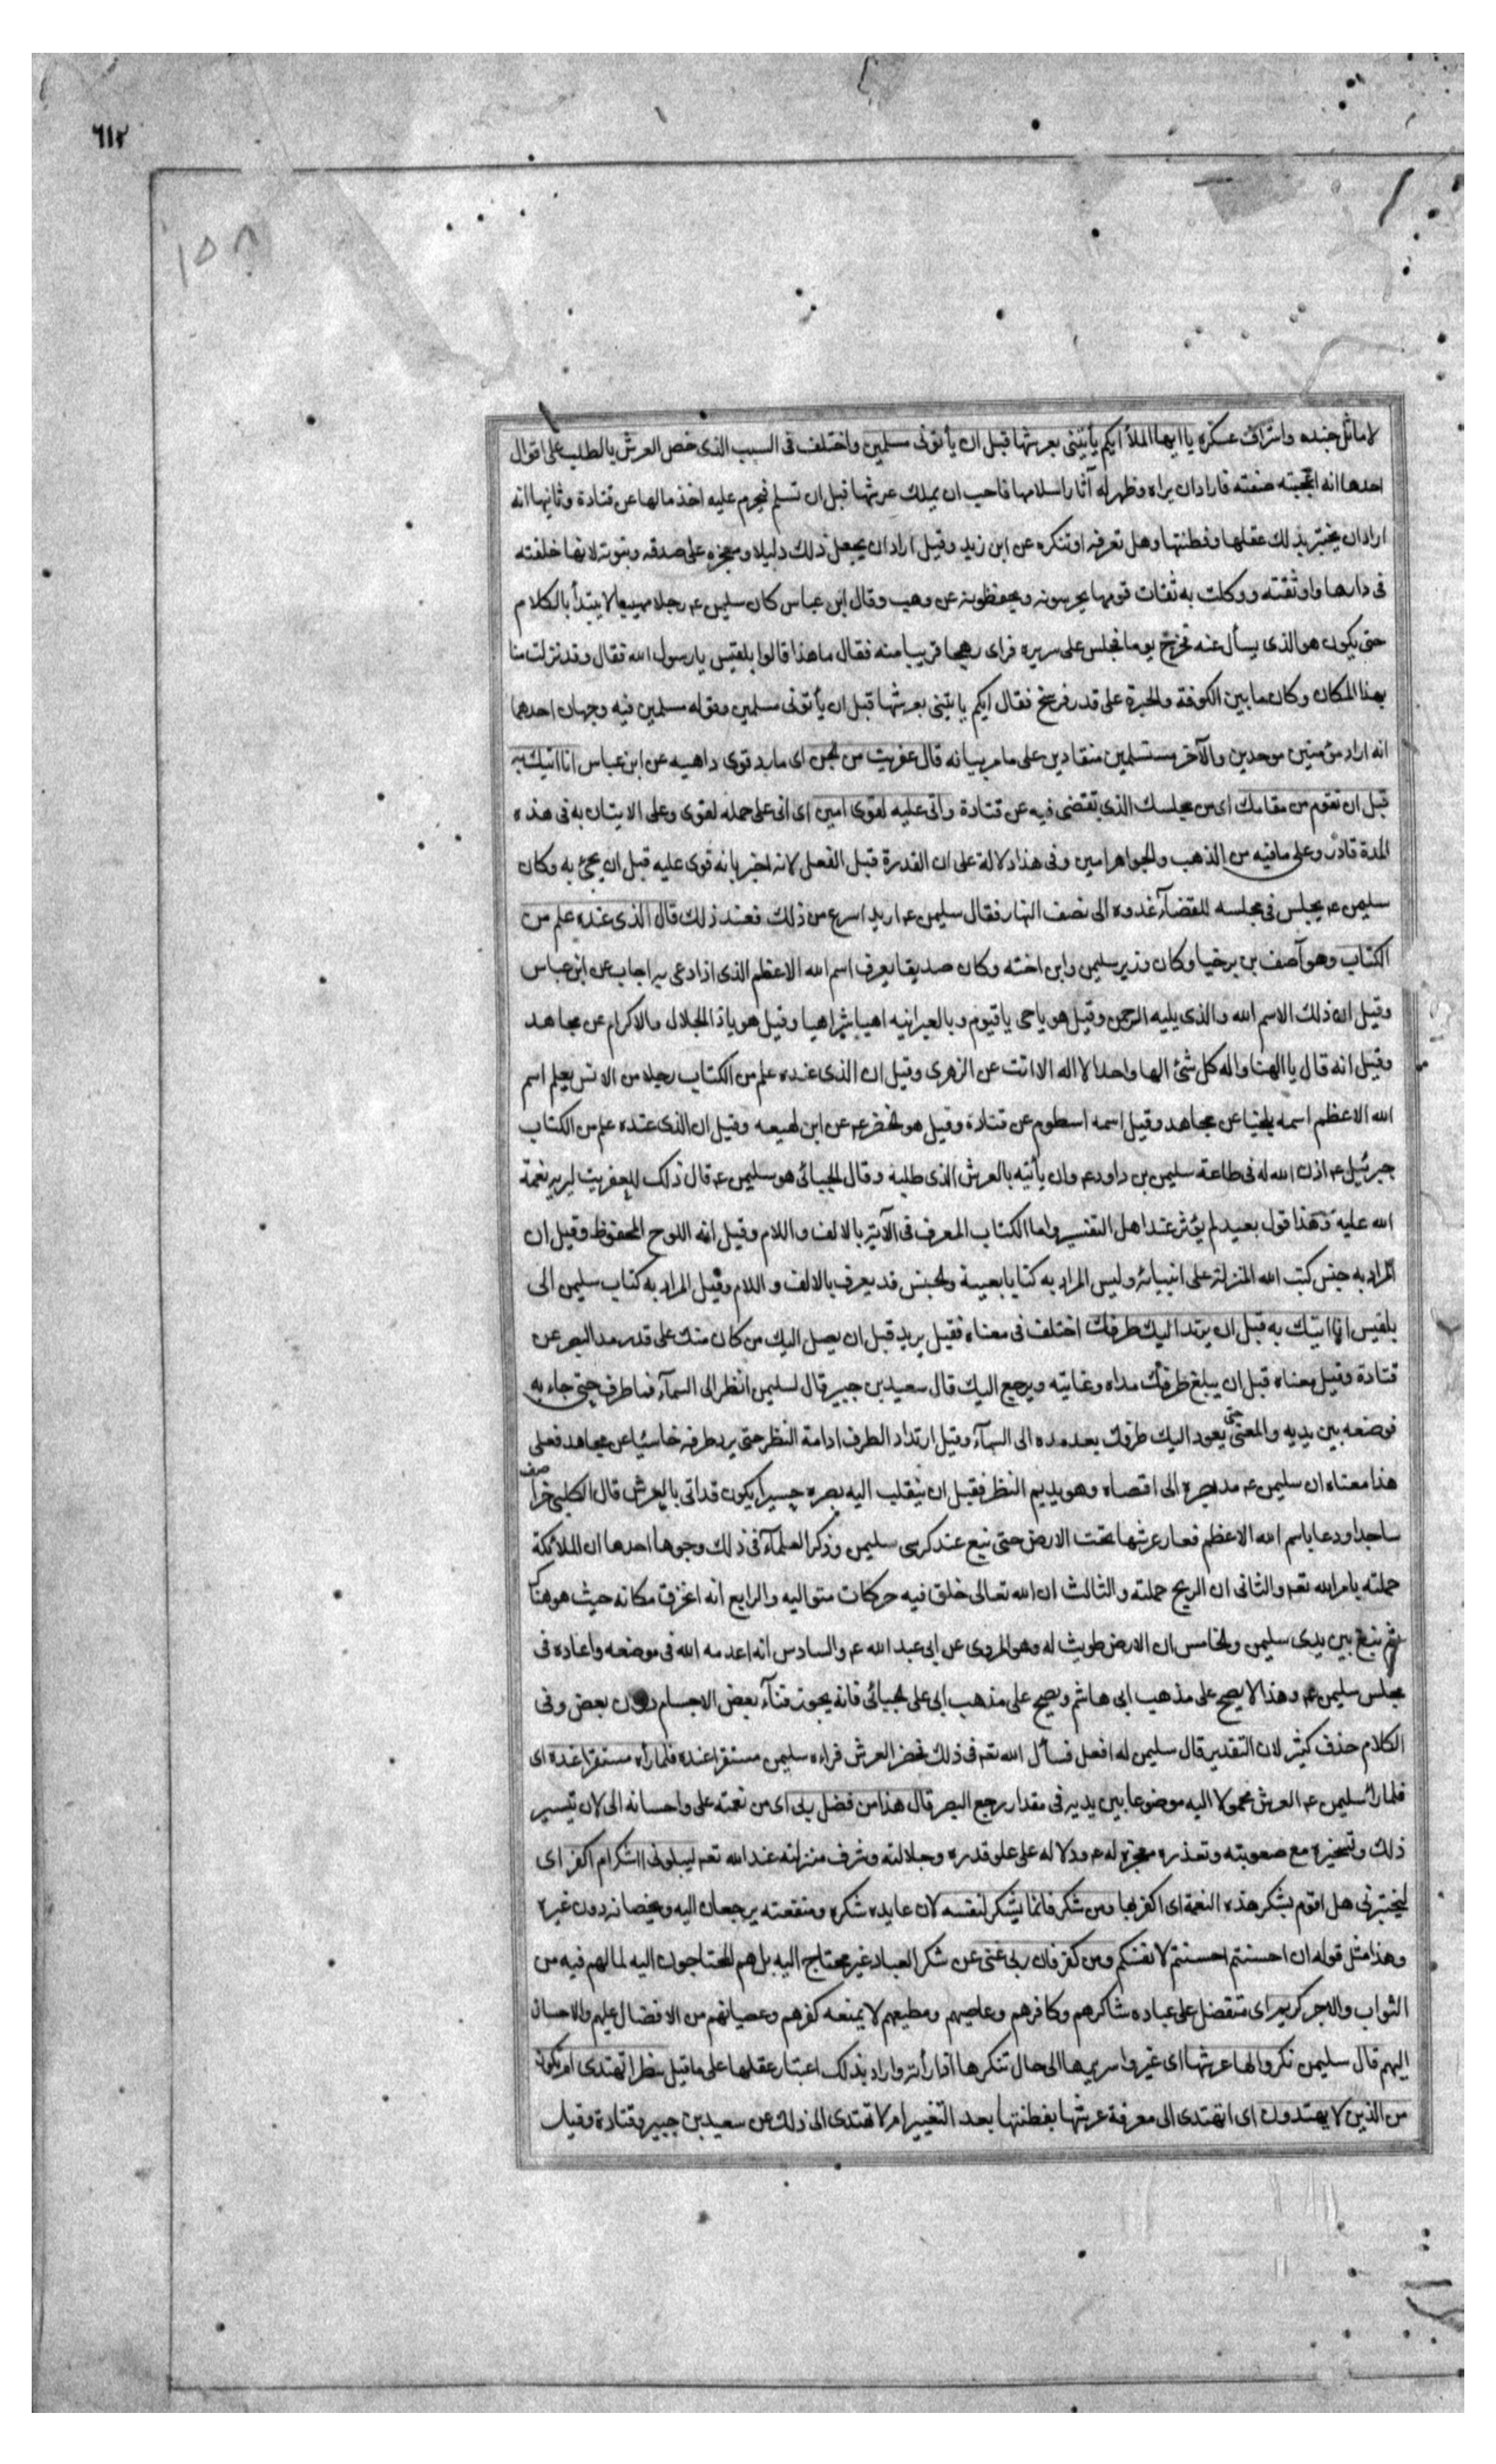 ٦١٢
١٥٨
لاماثل جنده واشراف عسكره يا ايها الملأ ايكم يأتينى بعرشها قبل ان يأتونى مسلمين واختلف فى السبب الذى خص العرش بالطلب على اقوال
احدها انه اعجبته صفته فاراد ان يراه وظهر له آثار اسلامها فاحب ان يملك عرشها قبل ان تسلم فيحرم عليه اخذ مالها عن قتادة وثانيها انه
اراد ان يختبر بذلك عقلها وفطنتها وهل تعرفه او تنكره عن ابن زيد وقيل اراد ان يجعل ذلك دليلا ومعجزه على صدقه ونبوته لانها خلفته
فى دارها واوثقته ووكلت به ثقات قومها يحرسونه ويحفظونه عن وهب وقال ابن عباس كان سليمن عم رجلا مهيبا لا يبتدأ بالكلام
حتى يكون هو الذى يسأل عنه فخرج يوما فجلس على سريره فراى رهجا قريبا منه فقال ما هذا قالوا بلقيس يا رسول الله فقال وقد نزلت منا
بهذا المكان وكان ما بين الكوفة والحيرة على قدر فرسخ فقال ايكم ياتينى بعرشها قبل ان يأتونى مسلمين وقوله مسلمين فيه وجهان احدهما
انه اراد مؤمنين موحدين والآخر مستسلمين منقادين على ما مر بيانه قال عفريت من الجن اى مارد قوى داهيه عن ابن عباس انا اتيك به
قبل ان تقوم من مقامك اى من مجلسك الذى تقضى فيه عن قتادة وانى عليه لقوى امين اى انى على حمله لقوى وعلى الاتيان به فى هذه
المدة قادر وعلى ما فيه من الذهب والجواهر امين وفى هذا دلالة على ان القدرة قبل الفعل لانه اخبر بانه قوى عليه قبل ان يجئ به وكان
سليمن عم يجلس فى مجلسه للقضآء غدوه الى نصف النهار فقال سليمن عم اريد اسرع من ذلك فعند ذلك قال الذى عنده علم من
الكتاب وهو آصف بن برخيا وكان وزير سليمن وابن اخته وكان صديقا يعرف اسم الله الاعظم الذى اذا دعى به اجاب عن ابن عباس
وقيل ان ذلك الاسم الله والذى يليه الرحمن وقيل هو يا حى يا قيوم وبالعبرانيه اهيا شراهيا وقيل هو يا ذا الجلال والاكرام عن مجاهد
وقيل انه قال يا الهنا واله كل شئ الها واحدا لا اله الا انت عن الزهرى وقيل ان الذى عنده علم من الكتاب رجلا من الانس يعلم اسم
الله الاعظم اسمه بلخيا عن مجاهد وقيل اسمه اسطوم عن قتادة وقيل هو الخضر عم عن ابن لهيعه وقيل ان الذى عنده علم من الكتاب
جبرئيل عم اذن الله له فى طاعة سليمن بن داود عم وان يأتيه بالعرش الذى طلبه وقال الجبائى هو سليمن عم قال ذلك للعفريت ليريه نعمة
الله عليه وهذا قول بعيد لم يؤثر عند اهل التفسير واما الكتاب المعرف فى الآية بالالف واللام وقيل انه اللوح المحفوظ وقيل ان
المراد به جنس كتب الله المنزلة على انبيائه وليس المراد به كتابا بعينه والجنس قد يعرف بالالف واللام وقيل المراد به كتاب سليمن الى
بلقيس انا اتيك به قبل ان يرتد اليك طرفك اختلف فى معناه فقيل يريد قبل ان يصل اليك من كان منك على قدر مد البصر عن
قتادة وقيل معناه قبل ان يبلغ طرفك مداه وغايته ويرجع اليك قال سعيد بن جبير قال لسليمن انظر الى السمآء فما طرف حتى جاء به
فوضعه بين يديه والمعنى حتى يعود اليك طرفك بعد مده الى السمآء وقيل ارتداد الطرف ادامة النظر حتى يرد طرفه خاسئا عن مجاهد فعلى
هذا معناه ان سليمن عم مد بصره الى اقصاه وهو يديم النظر فقبل ان ينقلب اليه بصره حسيرا يكون قد اتى بالعرش قال الكلبى خر آصف
ساجدا ودعا باسم الله الاعظم فغار عرشها تحت الارض حتى نبع عند كرسى سليمن وذكر العلمآء فى ذلك وجوها احدها ان الملائكة
حملته بامر الله تعم والثانى ان الريح حملته والثالث ان الله تعالى خلق فيه حركات متواليه والرابع انه انخرق مكانه حيث هو هناك
ثم نبع بين يدى سليمن والخامس ان الارض طويت له وهو المروى عن ابى عبد الله عم والسادس انه اعدمه الله فى موضعه واعاده فى
مجلس سليمن عم وهذا لا يصح على مذهب ابى هاشم ويصح على مذهب ابى على الجبائى فانه يجوز فنآء بعض الاجسام دون بعض وفى
الكلام حذف كثير لان التقدير قال سليمن له افعل فسأل الله تعم فى ذلك فحضر العرش فراه سليمن مستقرا عنده فلما رآه مستقرا عنده اى
فلما راى سليمن عم العرش محمولا اليه موضوعا بين يديه فى مقدار رجع البصر قال هذا من فضل ربى اى من نعمته على واحسانه الى لان تيسير
ذلك وتسخيره مع صعوبته وتعذره معجزه له عم ودلاله على علو قدره وجلالته وشرف منزلته عند الله تعم ليبلونى ااشكر ام اكفر اى
ليختبرنى هل اقوم بشكر هذه النعمة ام اكفر بها ومن شكر فانما يشكر لنفسه لان عايده شكره ومنفعته يرجعان اليه ويخصانه دون غيره
وهذا مثل قوله ان احسنتم احسنتم لانفسكم ومن كفر فان ربى غنى عن شكر العباد غير محتاج اليه بل هم المحتاجون اليه لما لهم فيه من
الثواب والاجر كريم اى متفضل على عباده شاكرهم وكافرهم وعاصيهم ومطيعهم لا يمنعه كفرهم وعصيانهم من الافضال عليهم والاحسان
اليهم قال سليمن نكروا لها عرشها اى غيروا سريرها الى حال تنكرها اذا رأته واراد بذلك اعتبار عقلها على ما قيل ننظر اتهتدى ام تكون
من الذين لا يهتدون اى اتهتدى الى معرفة عرشها بفطنتها بعد التغيير ام لا تهتدى الى ذلك عن سعيد بن جبير وقتادة وقيل